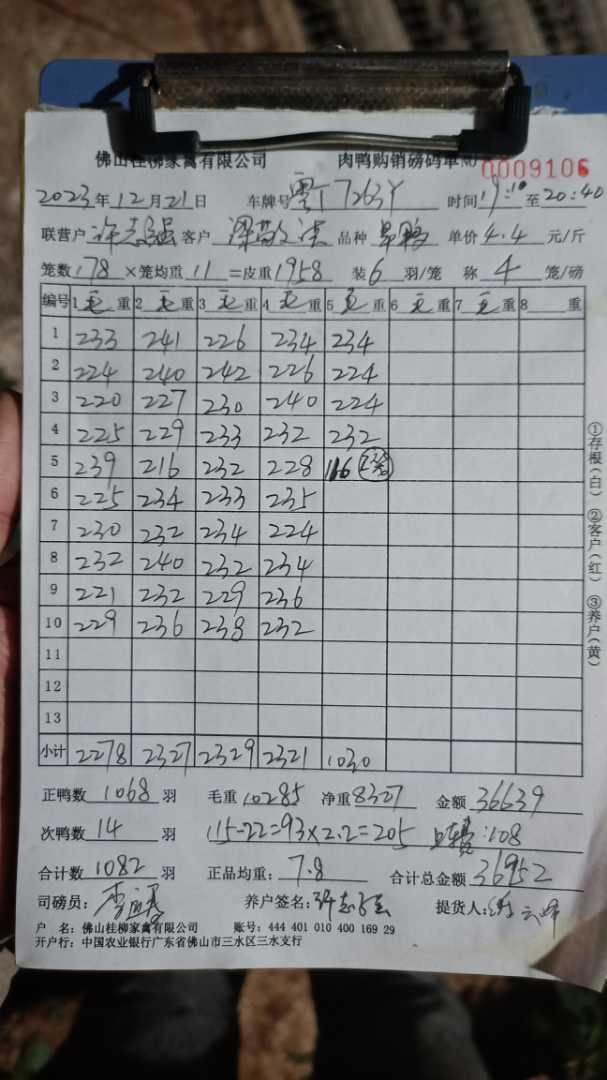 佛山桂柳家禽有限公司 肉鸭购销磅码单 №0009106
2023年12月21日 车牌号 粤T7263Y 时间19:10至20:40
联营户 许志强 客户 品种 鸭 单价4.4元/斤
笼数178×笼均重11=皮重1958 装6羽/笼 称4笼/磅
编号 1毛重 2毛重 3毛重 4毛重 5毛重 6毛重 7毛重 8重
1 233 241 226 234 234
2 224 240 242 226 224
3 220 227 230 240 224
4 225 229 233 232 232
5 239 216 232 228 116 2笼
6 225 234 233 235
7 230 232 234 224
8 232 240 232 234
9 221 232 229 236
10 229 236 238 232
11
12
13
小计 2278 2327 2329 2321 1030
正鸭数1068羽 毛重10285 净重8327 金额36639
次鸭数14羽 115-22=93×2.2=205 :108
合计数1082羽 正品均重:7.8 合计总金额36952
司磅员: 养户签名:许志强 提货人:
户 名:佛山桂柳家禽有限公司 账号:444 401 010 400 169 29
开户行:中国农业银行广东省佛山市三水区三水支行
①存根(白) ②客户(红) ③养户(黄)